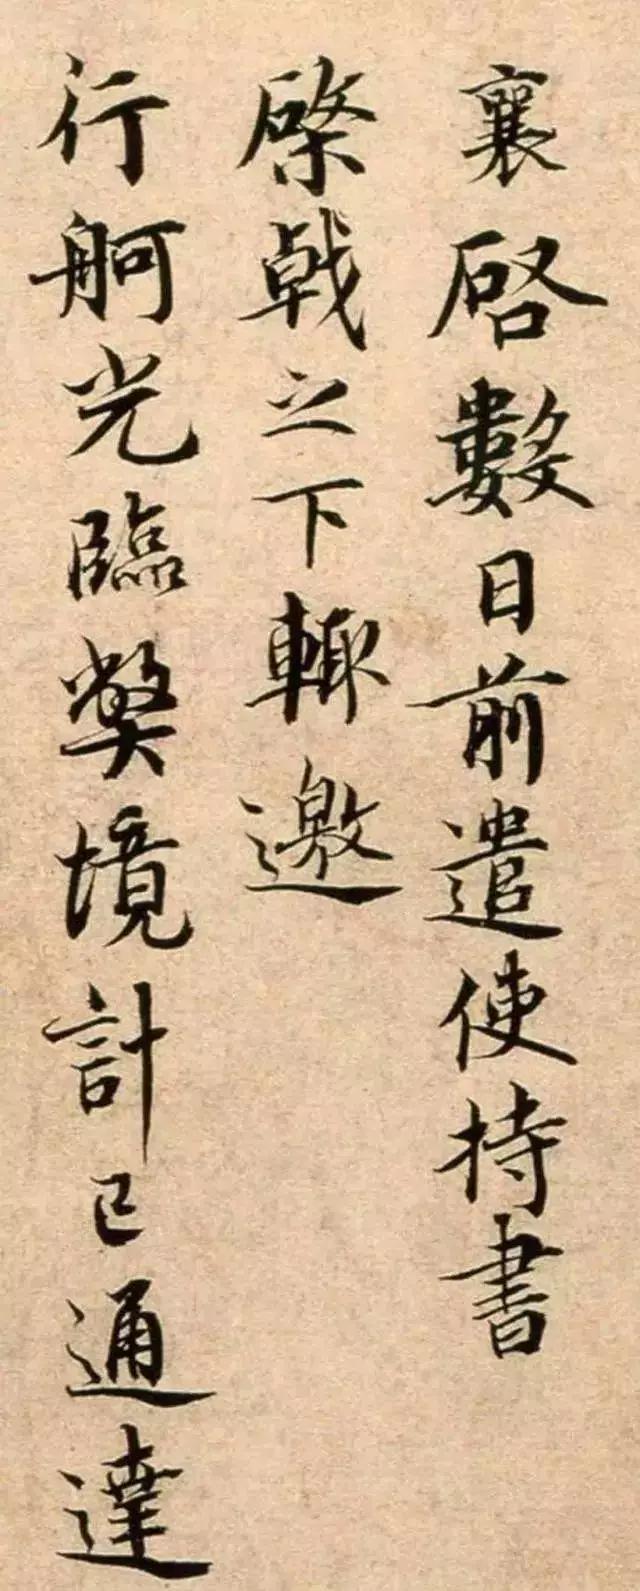 襄啓數日前遣使持書
棨戟之下輙邀
行舸光臨獘境計已通達